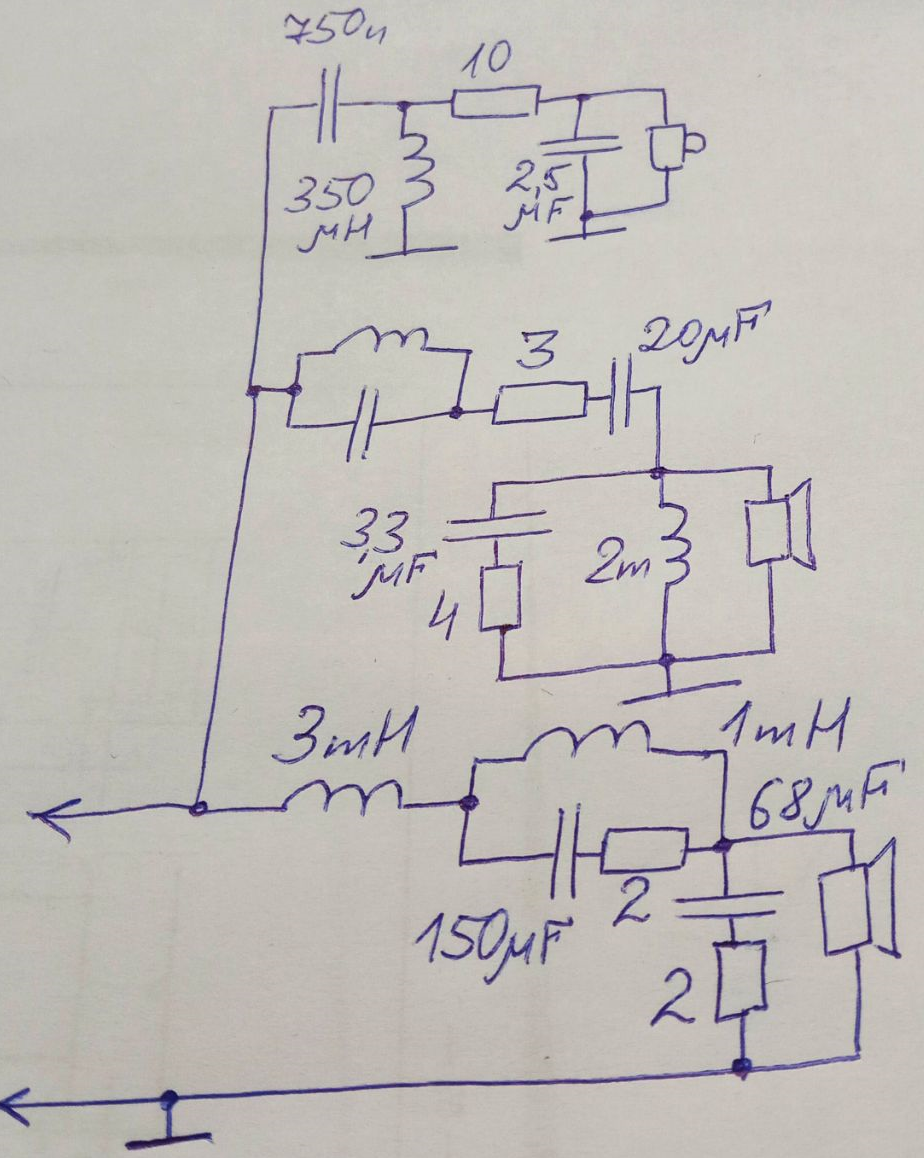 750n
10
350
μH
2,5
μF
3
20μF
3,3
μF
4
2m
3mH
1mH
68μF
150μF
2
2